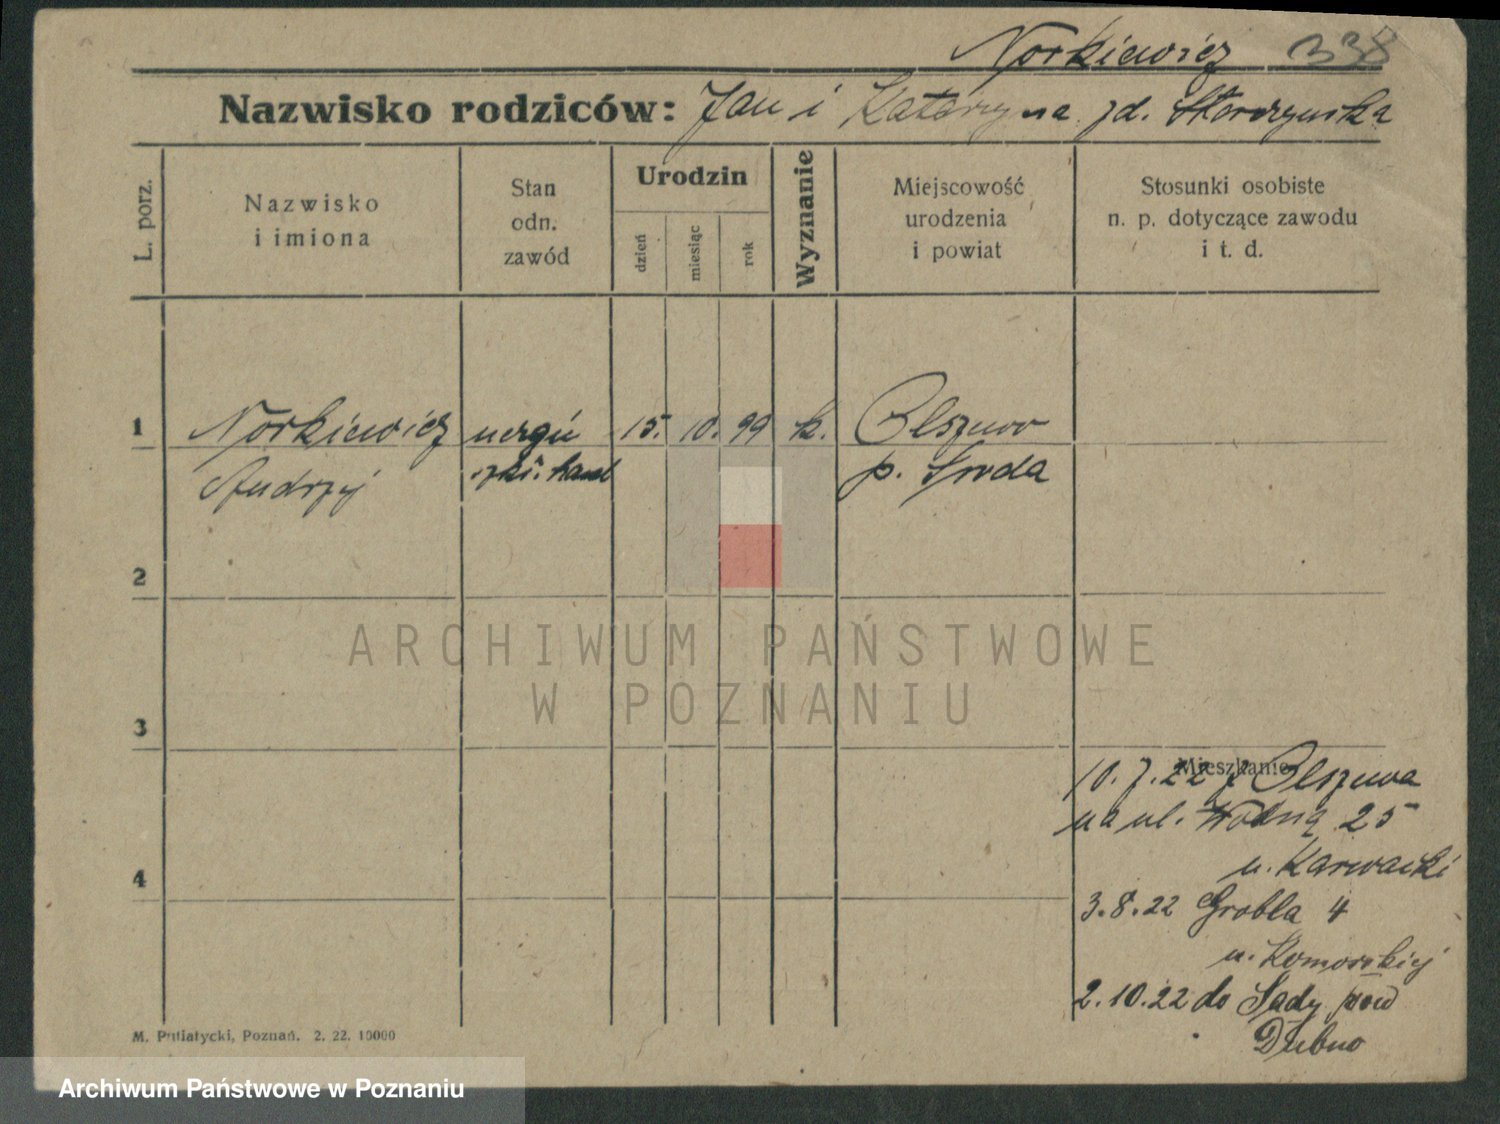 Norkiewicz 338
Nazwisko rodziców: Jan i Katarzyna zd. Skoroszewska
L. porz.
Nazwisko
i imiona
Stan
odn.
zawód
Urodzin
dzień
miesiąc
rok
Wyznanie
Miejscowość
urodzenia
i powiat
Stosunki osobiste
n. p. dotyczące zawodu
i t. d.
1
Norkiewicz
15. 10. 99 k. Olszewo
Andrzej
p. Środa
2
ARCHIWUM PAŃSTWOWE
W POZNANIU
3
Mieszkanie
10. 7. 22 z Olszewa
na ul. Wodną 25
u. Karwacki
4
3. 8. 22 Grobla 4
u. Komorskiej
2. 10. 22 do Sady pow
Dubno
M. Putiatycki, Poznań. 2. 22. 10000
Archiwum Państwowe w Poznaniu